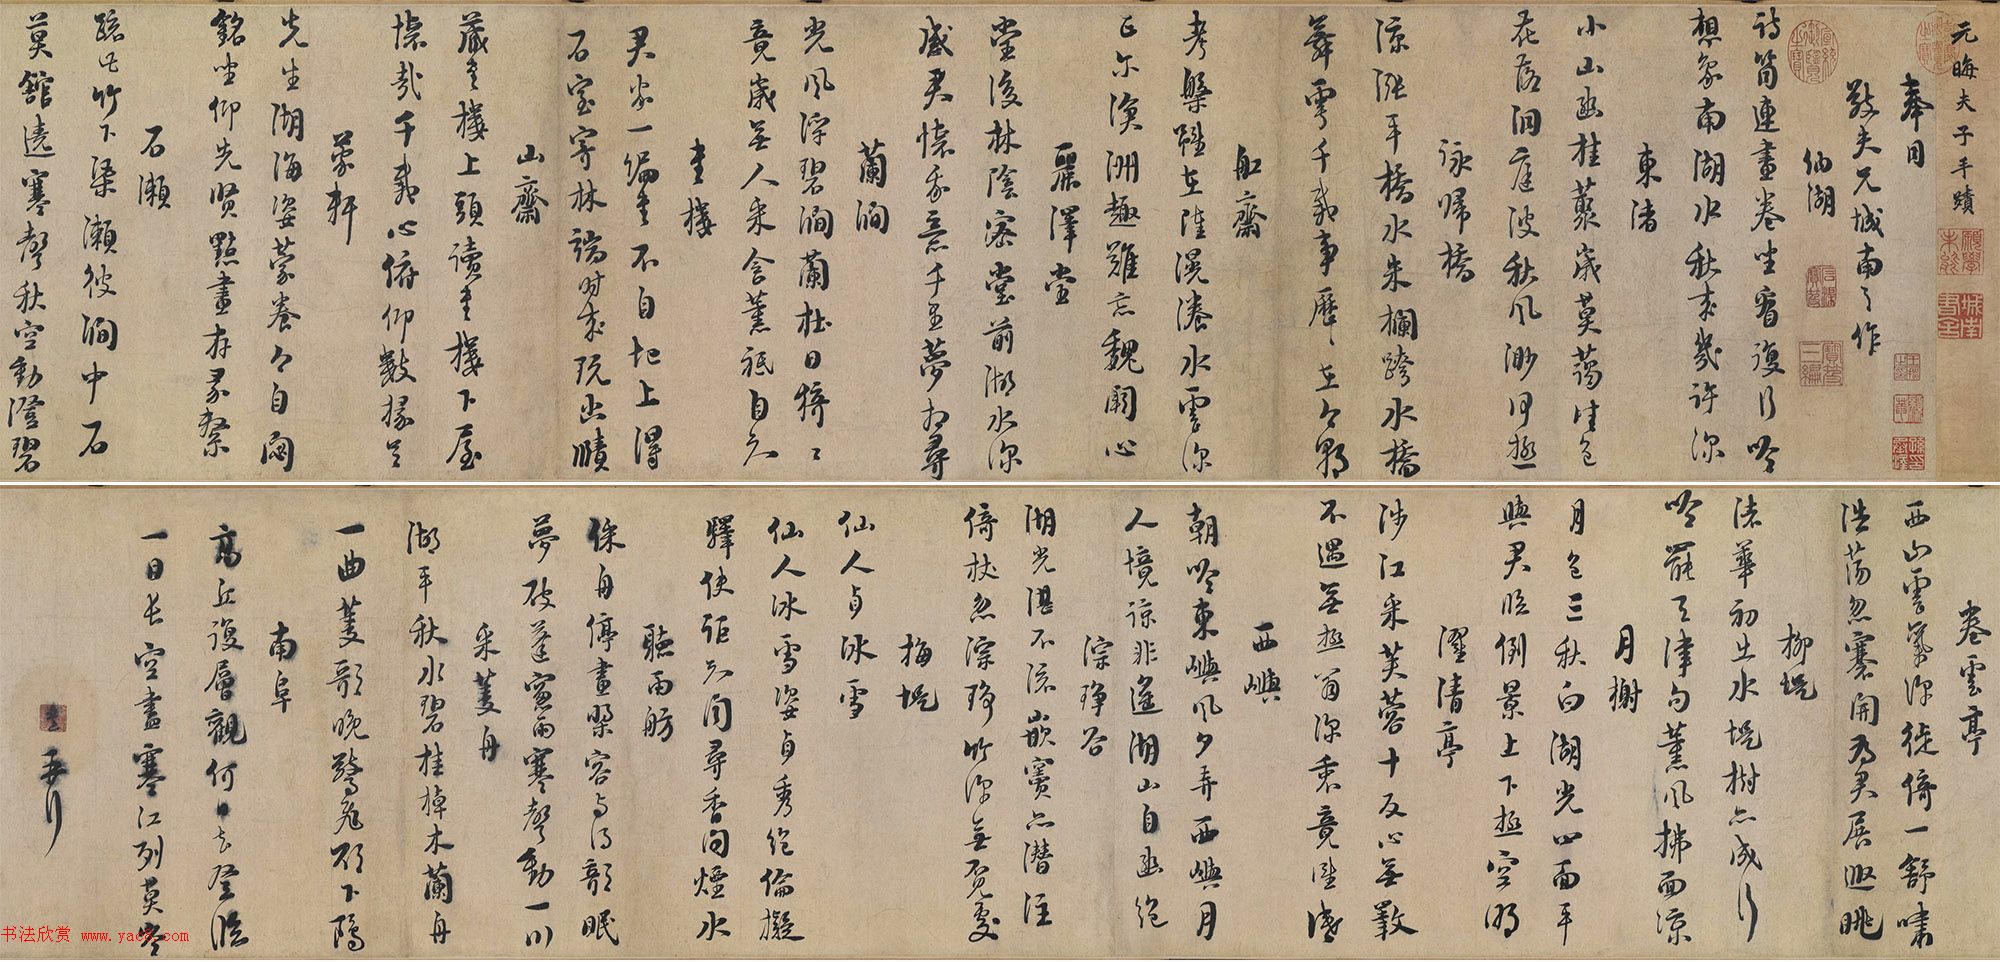 元晦夫子手蹟
奉同
敬夫兄城南之作
納湖
詩筒連畫卷坐看復行吟
想象南湖水秋來幾許深
東渚
小山幽桂叢歲莫藹佳色
花落洞庭波秋風渺何極
詠歸橋
綠漲平橋水朱欄跨水橋
舞雩千載事歷歷在今朝
船齋
考槃雖在陸滉瀁水雲深
正爾滄洲趣難忘魏闕心
麗澤堂
堂後林陰密堂前湖水深
感君懷我意千里夢相尋
蘭澗
光風浮碧澗蘭杜日猗猗
竟歲無人采含薰祗自知
書樓
君家一編書不自圯上得
石室寄林端時來玩幽賾
山齋
藏書樓上頭讀書樓下屋
懷哉千載心俯仰數椽足
蒙軒
先生湖海姿蒙養今自閟
銘坐仰先賢點畫存彖繫
石瀨
疏此竹下渠瀨彼澗中石
莫館遶寒聲秋空動澄碧
卷雲亭
西山雲氣深徙倚一舒嘯
浩蕩忽褰開為君展遐眺
柳堤
渚華初出水堤樹亦成行
吟罷天津句薰風拂面涼
月榭
月色三秋白湖光四面平
與君臨倒景上下極空明
濯清亭
涉江采芙蓉十反心無斁
不遇無極翁深衷竟誰識
西嶼
朝吟東嶼風夕弄西嶼月
人境諒非遙湖山自幽絕
淙琤谷
湖光湛不流嵌竇亦潛注
倚杖忽淙琤竹深無覓處
梅堤
仙人貞冰雪
仙人冰雪姿貞秀絕倫擬
驛使詎知聞尋香問煙水
聽雨舫
綵舟停畫槳容與得欹眠
夢破蓬窗雨寒聲動一川
采菱舟
湖平秋水碧桂棹木蘭舟
一曲菱歌晚驚飛欲下鷗
南阜
高丘復層觀何日去登臨
一目長空盡寒江列莫岑
书法欣赏 www.yac8.com